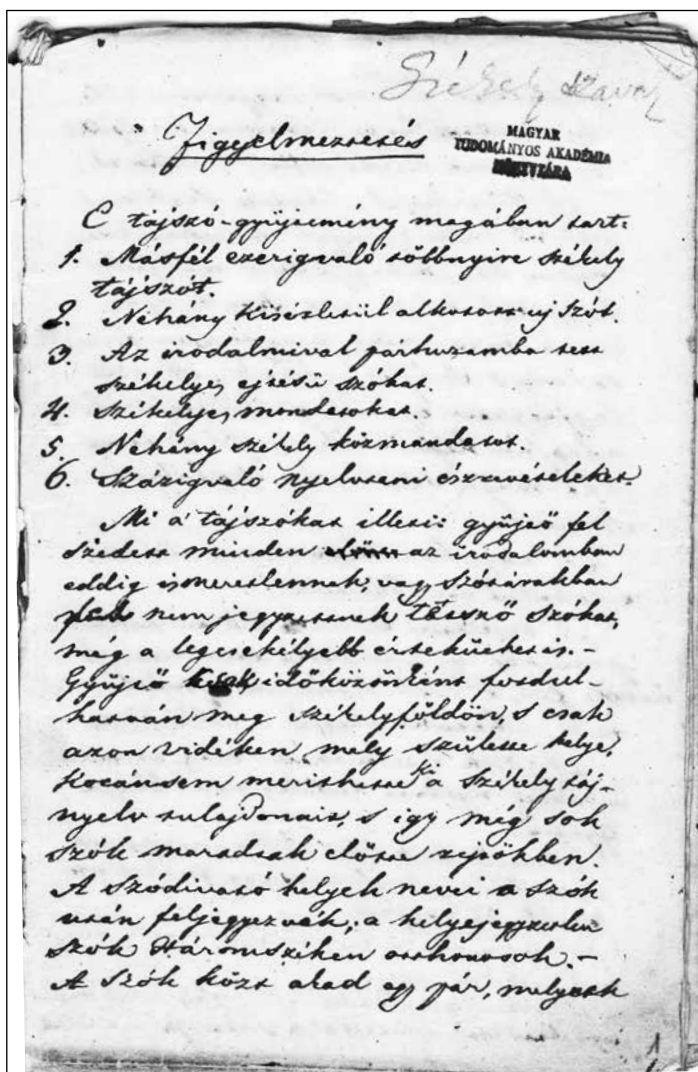 Székely szavak
Figyelmeztetés
MAGYAR
TUDOMÁNYOS AKADÉMIA
KÖNYVTÁRA
E tájszó-gyüjtemény magában tart:
1. Másfél ezerigvaló többnyire székely
tájszót.
2. Nehány kisérletül alkotott uj szót.
3. Az irodalmival párhuzamba tett
székelyes ejtésü szókat.
4. Székelyes mondatokat.
5. Nehány székely közmondatot.
6. Százigvaló nyelvtani észrevételeket.
Mi a' tájszókat illeti: gyüjtő fel
szedett minden az irodalomban
eddig ismeretlennek, vagy szótárakban
nem jegyzettnek tetsző szókat,
meg a legcsekélyebb értéküeket is. –
Gyüjtő csak időközönként fordul-
hatván meg Székelyföldön, s csak
azon vidéken, mely születte helye,
kocánsem merithette ki a székely táj-
nyelv tulajdonait, s igy még sok
szók maradtak előtte rejtökben.
A szódivató helyek nevei a szók
után feljegyezvék; a helyejegyzetlen
szók Háromszéken otthonosok. –
A szók közt akad egy pár, melyek
1